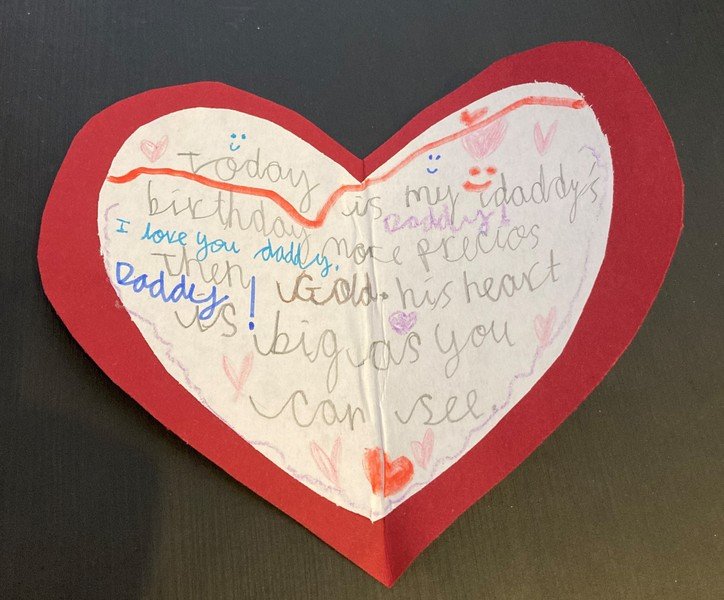 Today is my daddy's
birthday more precios
Daddy!
I love you daddy.
Then Gold. his heart
Daddy!
is big as you
can see.